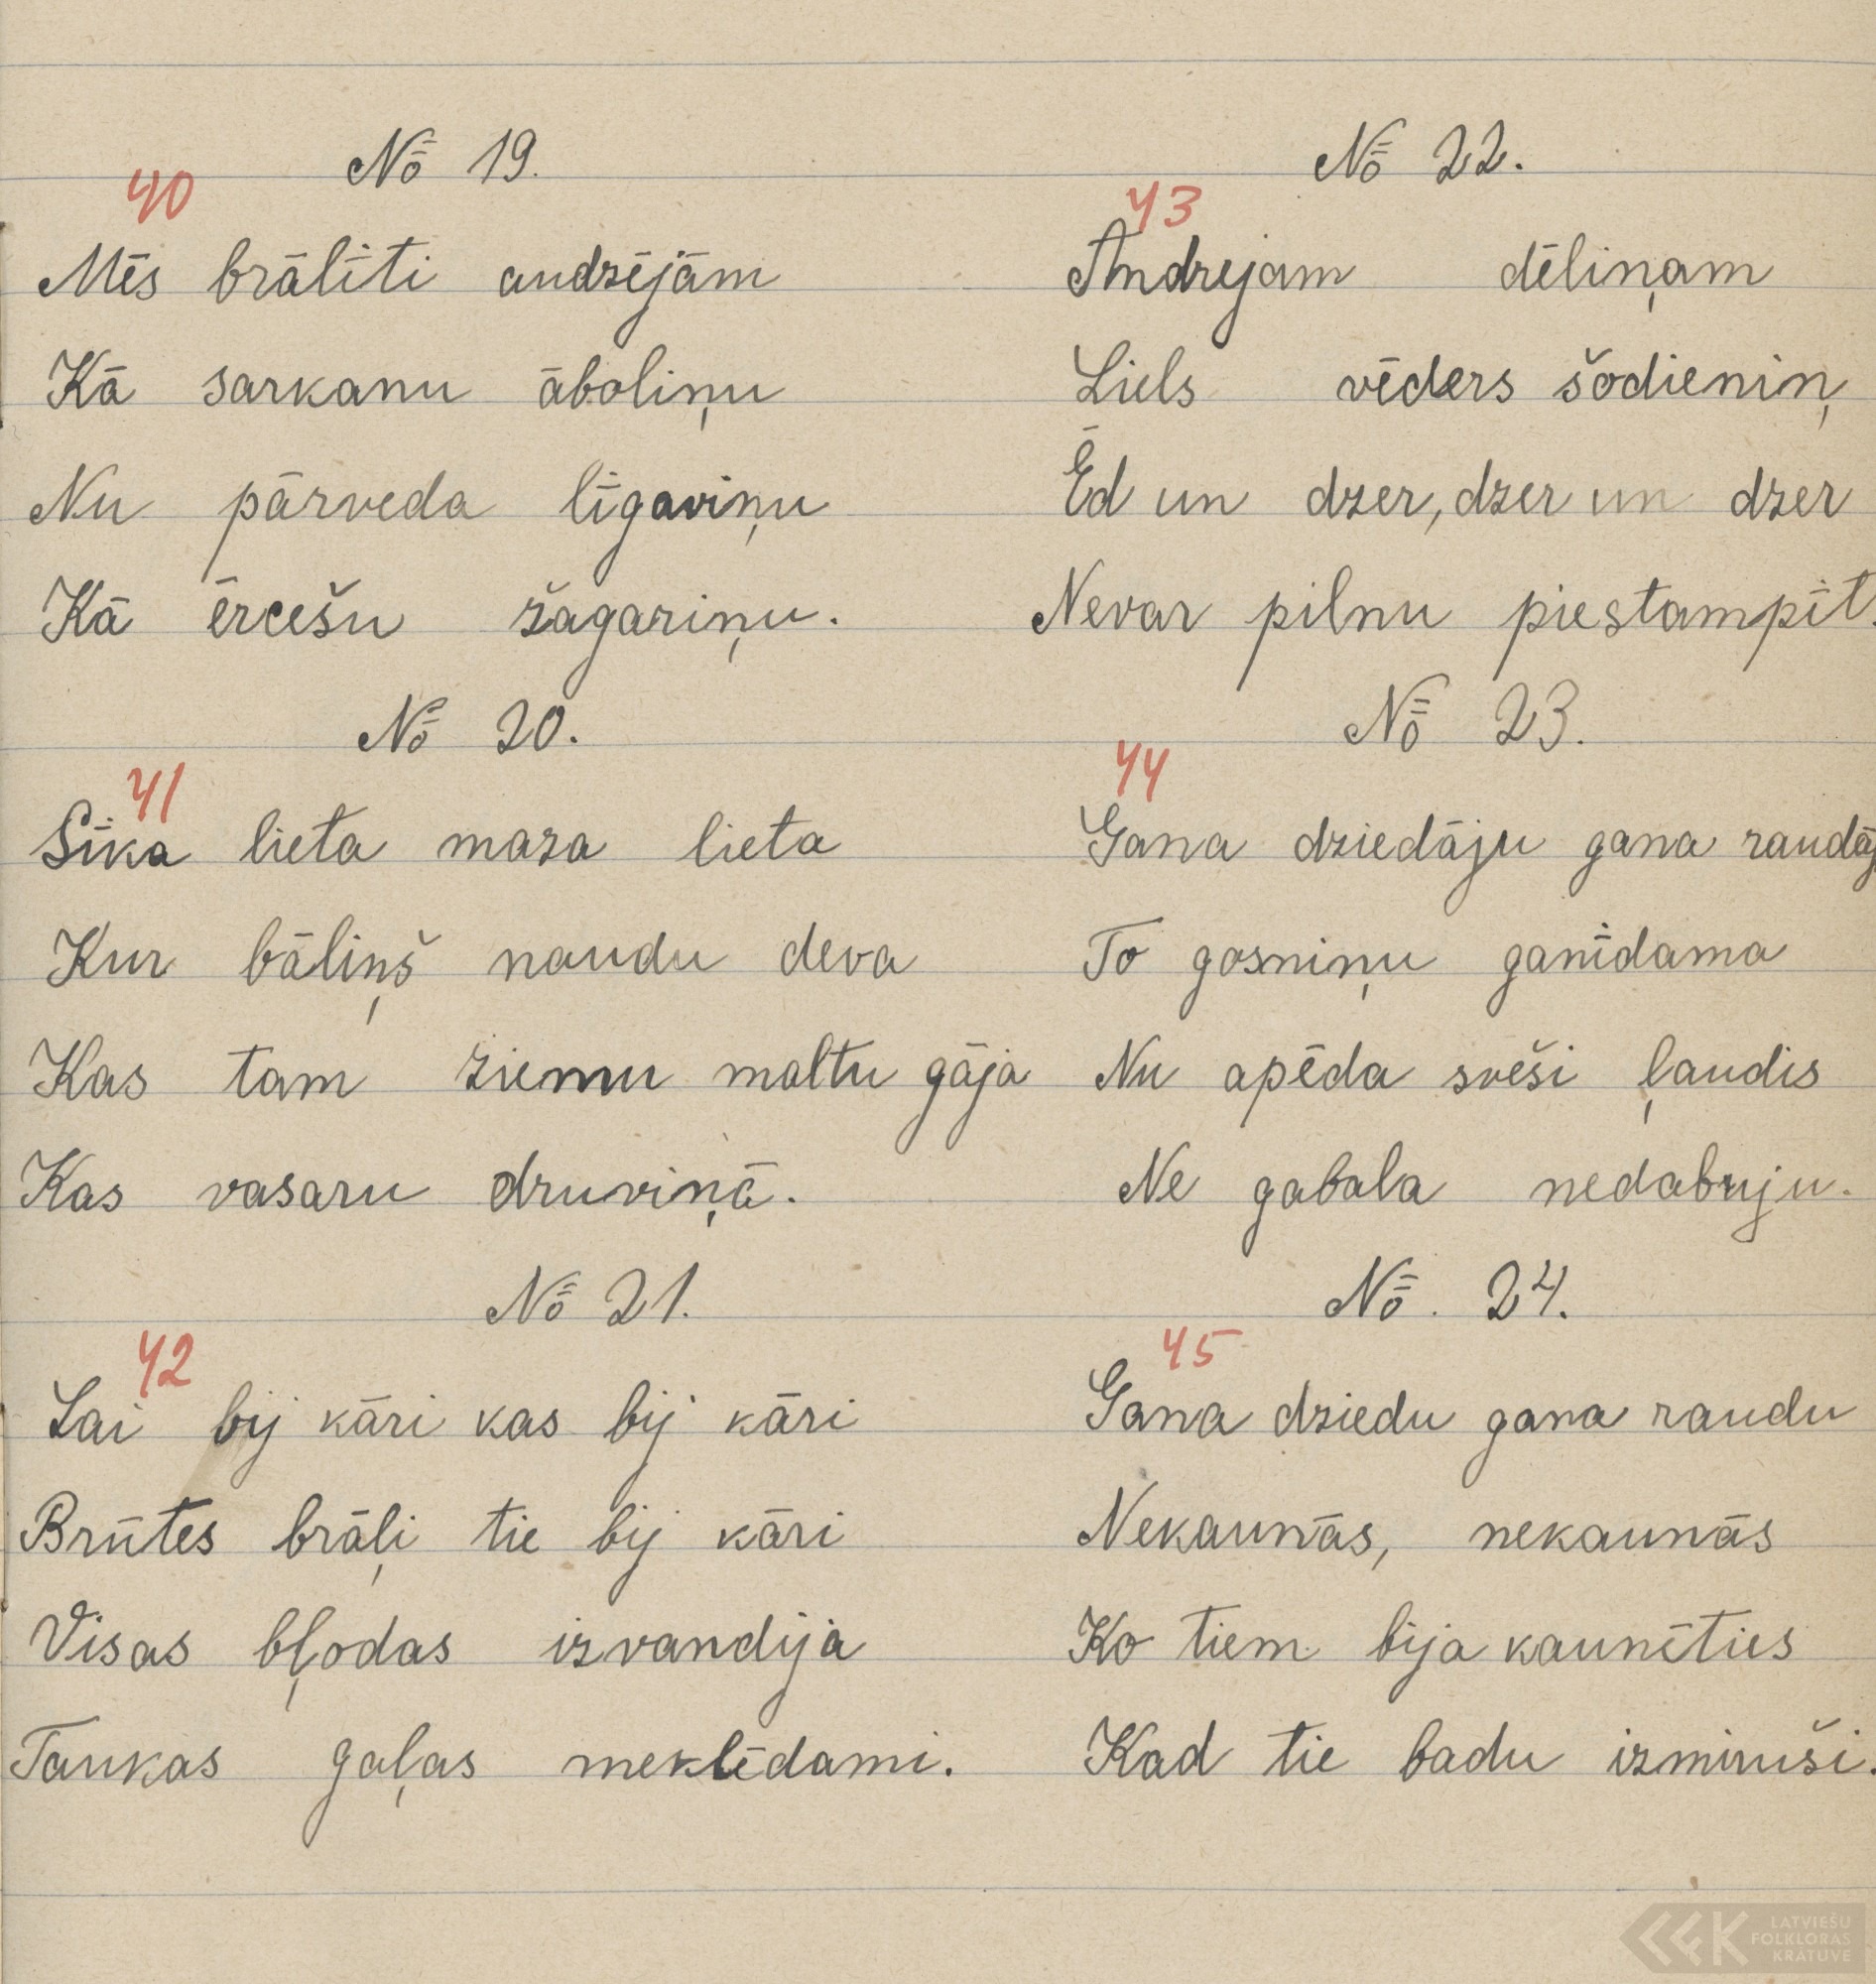 № 19.
40
Mēs brālīti audzējām
Kā sarkanu āboliņu
Nu pārveda līgaviņu
Kā ērcešu žagariņu.
№ 20.
41
Sīka lieta maza lieta
Kur bāliņš naudu deva
Kas tam ziemu maltu gāja
Kas vasaru druviņā.
№ 21.
42
Lai bij kāri kas bij kāri
Brūtes brāļi tie bij kāri
Visas bļodas izvandija
Taukas gaļas meklēdami.
№ 22.
43
Andrejam dēliņam
Liels vēders šodieniņ
Ēd un dzer, dzer un dzer
Nevar pilnu piestampīt.
№ 23.
44
Gana dziedāju gana raudāj
To gosniņu ganīdama
Nu apēda sveši ļaudis
Ne gabala nedabuju.
№. 24.
45
Gana dziedu gana raudu
Nekaunās, nekaunās
Ko tiem bija kaunēties
Kad tie badu izmiruši.
LATVIEŠU
FOLKLORAS
KRĀTUVE